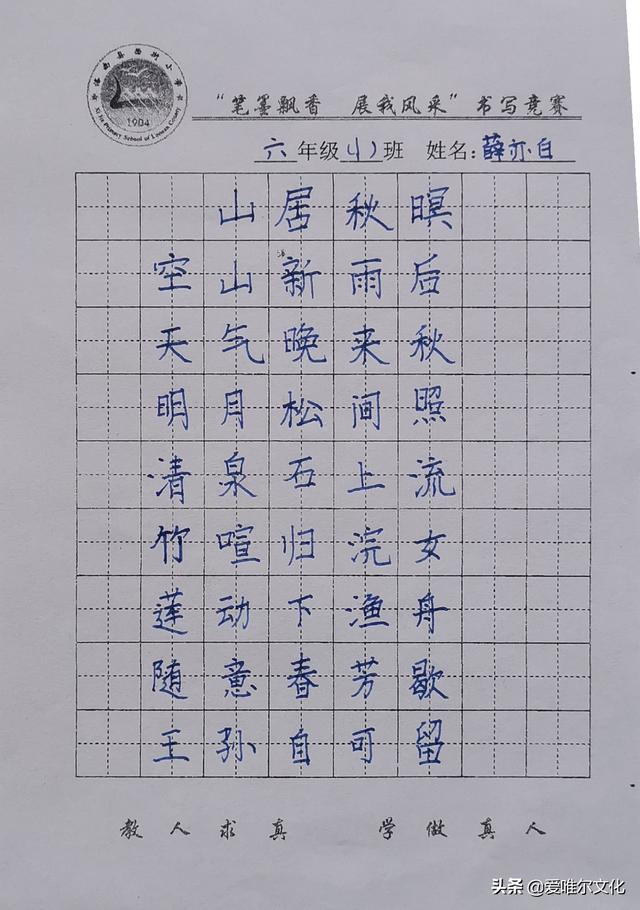 1904
"笔墨飘香 展我风采"书写竞赛
六年级(1)班 姓名:薛亦白
山居秋暝
空山新雨后
天气晚来秋
明月松间照
清泉石上流
竹喧归浣女
莲动下渔舟
随意春芳歇
王孙自可留
教人求真 学做真人
头条@爱唯尔文化